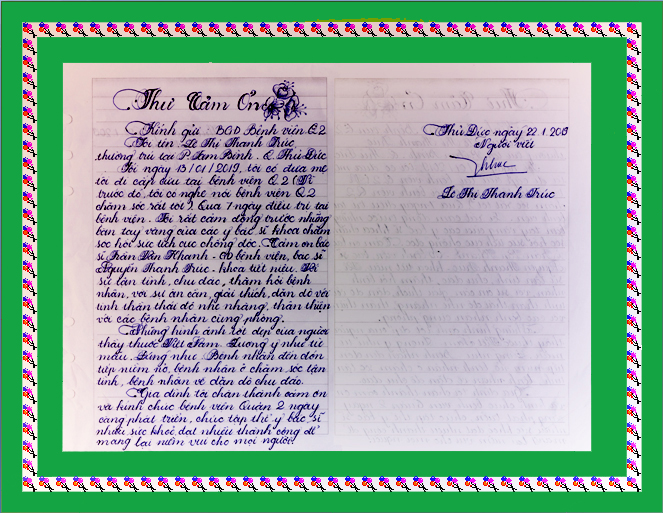 Thư Cảm Ơn
Kính gửi: BGĐ Bệnh viện Q2
Tôi tên: Lê Thị Thanh Trúc
thường trú tại P. Tam Bình. Q. Thủ Đức
Tôi ngày 15/01/2019, tôi có đưa mẹ
tôi đi cấp cứu tại bệnh viện Q2 (Vì
trước đó, tôi có nghe nói bệnh viện Q2
chăm sóc rất tốt). Qua 7 ngày điều trị tại
bệnh viện. Tôi rất cảm động trước những
bàn tay vàng của các y bác sĩ khoa chăm
sóc hồi sức tích cực chống độc. Cảm ơn bác
sĩ Trần Văn Khanh - GĐ bệnh viện, bác sĩ
Nguyễn Thanh Trúc - khoa tiết niệu. Về
sự tận tình, chu đáo, thăm hỏi bệnh
nhân, với sự ân cần, giải thích, dặn dò với
tinh thần thái độ nhẹ nhàng, thân thiện
và các bệnh nhân cùng phòng.
Những hình ảnh tốt đẹp của người
thầy thuốc Việt Nam. Lương y như từ
mẫu. Đúng như: Bệnh nhân đến đón
tiếp niềm nở, bệnh nhân ở chăm sóc tận
tình, bệnh nhân về dặn dò chu đáo.
Gia đình tôi chân thành cảm ơn
và kính chúc bệnh viện Quận 2 ngày
càng phát triển, chúc tập thể y bác sĩ
nhiều sức khoẻ đạt nhiều thành công để
mang lại niềm vui cho mọi người!
Thủ Đức ngày 22.1.2019
Người viết
Lê Thị Thanh Trúc